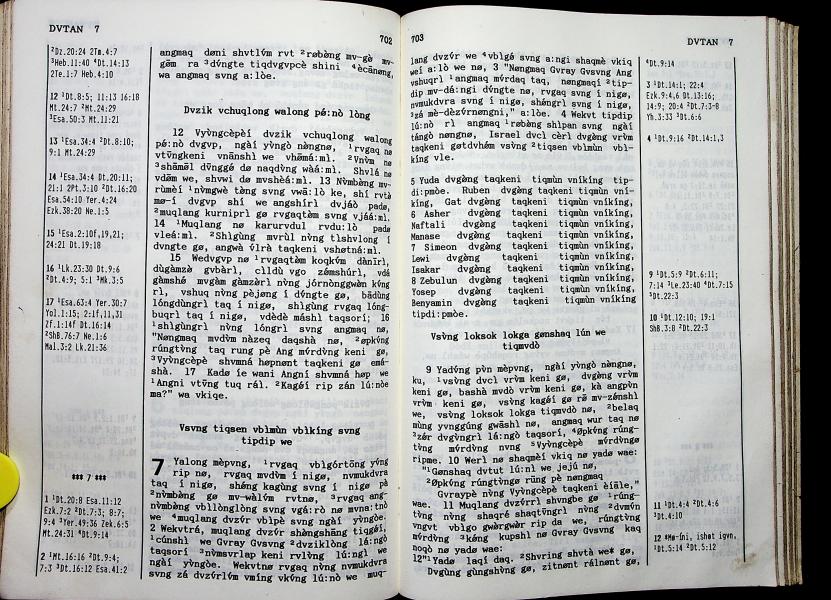 DVTAN 7
702
²Dz.20:24 2Tm.4:7
³Heb.11:40 ⁴Dt.14:13
2Te.1:7 Heb.4:10
12 ¹Dt.8:5; 11:13 16:18
Mt.24:7 ²Mt.24:29
³Esa.50:3 Mt.11:21
13 ¹Esa.34:4 Dt.8:10;
9:1 Mt.24:29
14 ¹Esa.34:4 Dt.20:11;
21:1 2Pt.3:10 ²Dt.16:20
Esa.54:10 Yer.4:24
Ezk.38:20 Ne.1:5
15 ¹Esa.2:10f,19,21;
24:21 Dt.19:18
16 ¹Lk.23:30 Dt.9:6
²Dt.4:9; 5:1 ³Mk.3:5
17 ¹Esa.63:4 Yer.30:7
Yol.1:15; 2:1f,11,31
Zf.1:14f Dt.16:14
²ShB.76:7 Ne.1:6
Mal.3:2 Lk.21:36
*** 7 ***
1 ¹Dt.20:8 Esa.11:12
Ezk.7:2 ²Dt.7:3; 8:7;
9:4 ³Yer.49:36 Zek.6:5
Mt.24:31 ⁴Dt.9:14
2 ¹Mt.16:16 ²Dt.9:4;
7:3 ³Dt.16:12 Esa.41:2
angmaq døni shvtlv́m rvt ²røbèng mv-gè mv-
gām ra ³dv́ngte tiqdvgvpcè shini ⁴ècānøng,
wa angmaq svng a:lòe.
Dvzik vchuqlong walong pé:nò lòng
12 Vyv̀ngcèpèí dvzik vchuqlong walong
pé:nò dvgvp, ngàí yv̀ngò nèngnø, ¹rvgaq nø
vtv̄ngkeni vnānshl we vhø̄má:ml. ²Vnv̀m nø
³shāmǿl dv̄nggé dø naqdv̀ng wàá:ml. Shvlá nø
vdø̄m we, shwvi dø mvshèá:ml. 13 Nv́mbèng mv-
rùmèí ¹nv̀mgwè tèng svng vwā:lò ke, shí rvtè
mø-í dvgvp shí we angshírl dvjáò padø,
²muqlang kurniprl gø rvgaqtèm svng vjáá:ml.
14 ¹Muqlang nø karurvdul rvdu:lò padø
vleá:ml. ²Shlgùng mvrùl nv̀ng tlshvlong í
dvngte gø, angwà v́lrà taqkeni vshøtná:ml.
15 Wedvgvp nø ¹rvgaqtèm koqkv́m dànīrl,
dùgàmzè gvbàrl, clldù vgo zémshúrl, vdá
gàmshé mvgàm gàmzèrl nv̀ng jórnònggwèn kv́ng
rl, vshuq nv̀ng pèjøng í dv́ngte gø, bādùng
lóngdùngrl taq í nigø, shlgùng rvgaq lóng-
buqrl taq í nigø, vdèdè máshl taqsorí; 16
¹shlgùngrl nv̀ng lóngrl svng angmaq nø,
"Nøngmaq mvdv̀m nàzeq daqshà nø, ²øpkv́ng
rúngtv̀ng taq rung pè Ang mv́rdv̀ng keni gø,
³Vyv̀ngcèpè shvmná høpnønt taqkeni gø emá-
shà. 17 Kadø íe wani Angní shvmná høp we
¹Angni vtv̄ng tuq rál. ²Kagéí rip zán lú:nòe
ma?" wa vkiqe.
Vsvng tiqsen vblm̀ùn vblv́king svng
tipdip we
7 Yalong mèpvng, ¹rvgaq vblgórtōng yv́ng
rip nø, rvgaq mvdv̀m í nigø, nvmukdvra
taq í nigø, shéng kagùng svng í nigø pà
²nv́mbèng gø mv-wàlv́m rvtnø, ³rvgaq ang-
nv́mbèng vbllònglòng svng vgá:rò nø mvna:tnò
we ⁴muqlang dvzv́r vblpè svng ngàí yv̀ngòe.
2 Wekvtrá, muqlang dvzv́r shèngshāng tiqgéí,
¹cúnshl we Gvray Gvsvng ²dvziklòng lá:ngò
taqsorí ³nv̀msvrlap keni rvlv̀ng lú:ngl we
ngàí yv̀ngòe. Wekvtnø rvgaq nv̀ng nvmukdvra
svng zá dvzv́rlv́m vmíng vkv́ng lú:nò we muq-
703
DVTAN 7
lang dvzv́r we ⁴vblgé svng a:ngi shaqmè vkiq
weí a:lò we nø, 3 "Nøngmaq Gvray Gvsvng Ang
vshuqrl ¹angmaq mv́rdaq taq, nøngmaqí ²tip-
dip mv-dá:ngi dv́ngte nø, rvgaq svng í nigø,
nvmukdvra svng í nigø, shéngrl svng í nigø,
³zá mè-dèzv́rnøngni," a:lòe. 4 Wekvt tipdip
lú:nò rl angmaq ¹røbèng shlpan svng ngàí
tángò nøngnø, Israel dvcl cèrl dvgèng vrv́m
taqkeni gøtdvhém vsv̀ng ²tiqsen vblm̀ùn vbl-
kíng vle.
5 Yuda dvgèng taqkeni tiqmùn vníkíng tip-
di:pmòe. Ruben dvgèng taqkeni tiqmùn vní-
kíng, Gat dvgèng taqkeni tiqmùn vníkíng,
6 Asher dvgèng taqkeni tiqmùn vníkíng,
Naftali dvgèng taqkeni tiqmùn vníkíng,
Manase dvgèng taqkeni tiqmùn vníkíng,
7 Simeon dvgèng taqkeni tiqmùn vníkíng,
Lewi dvgèng taqkeni tiqmùn vníkíng,
Isakar dvgèng taqkeni tiqmùn vníkíng,
8 Zebulun dvgèng taqkeni tiqmùn vníkíng,
Yosep dvgèng taqkeni tiqmùn vníkíng,
Benyamin dvgèng taqkeni tiqmùn vníkíng
tipdi:pmòe.
Vsv̀ng loksok lokga gønshaq lún we
tiqmvdò
9 Yadv́ng pv̀n mèpvng, ngàí yv̀ngò nèngnø,
ku, ¹vsv̀ng dvcl vrv̀m keni gø, dvgèng vrv̀m
keni gø, bashà mvdò vrv̀m keni gø, kà angpv̀n
vrv̀m keni gø, vsv̀ng kagéí gø rē mv-zø̀nshl
we, vsv̀ng loksok lokga tiqmvdò nø, ²belaq
mùng yvnggúng gwāshl nø, angmaq wur taq nø
³zǿr dvgv̀ngrl lá:ngò taqsorí, ⁴Øpkv́ng rúng-
tv̀ng mv́rdv̀ng nv̀ng ⁵Vyv̀ngcèpè mv́rdv̀ngø
ripme. 10 Werl nø shaqmèí vkiq nø yadø wae:
"¹Gønshaq dvtut lú:nl we jejú nø,
²Øpkv́ng rúngtv̀ngø rùng pè nøngmaq
Gvraypè nv̀ng Vyv̀ngcèpè taqkeni èíāle,"
wae. 11 Muqlang dvzv́rrl shvngbe gø ¹rúng-
tv̀ng nv̀ng shaqré shaqtv̀ngrl nv̀ng ²dvmv́n
vngvt vblgo gwèrgwèr rip da we, rúngtv̀ng
mv́rdv̀ng ³kéng kupshl nø Gvray Gvsvng kaq
noqò nø yadø wae:
12"¹Yadø laqí daq. ²Shvring shvtà we* gø,
Dvgùng gùngshv̀ng gø, zitnønt rálnønt gø,
⁴Dt.9:14
3 ¹Dt.14:1; 22:4
Ezk.9:4,6 Dt.13:16;
14:9; 20:4 ²Dt.7:3-8
Yh.3:33 ³Dt.6:6
4 ¹Dt.9:16 ²Dt.14:1,3
9 ¹Dt.5:9 ²Dt.6:11;
7:14 ³Le.23:40 ⁴Dt.7:15
⁵Dt.22:3
10 ¹Dt.12:10; 19:1
ShB.3:8 ²Dt.22:3
11 ¹Dt.4:4 ²Dt.4:6
³Dt.4:10
12 *Mø-íni, ishøt igvn,
¹Dt.5:14 ²Dt.5:12